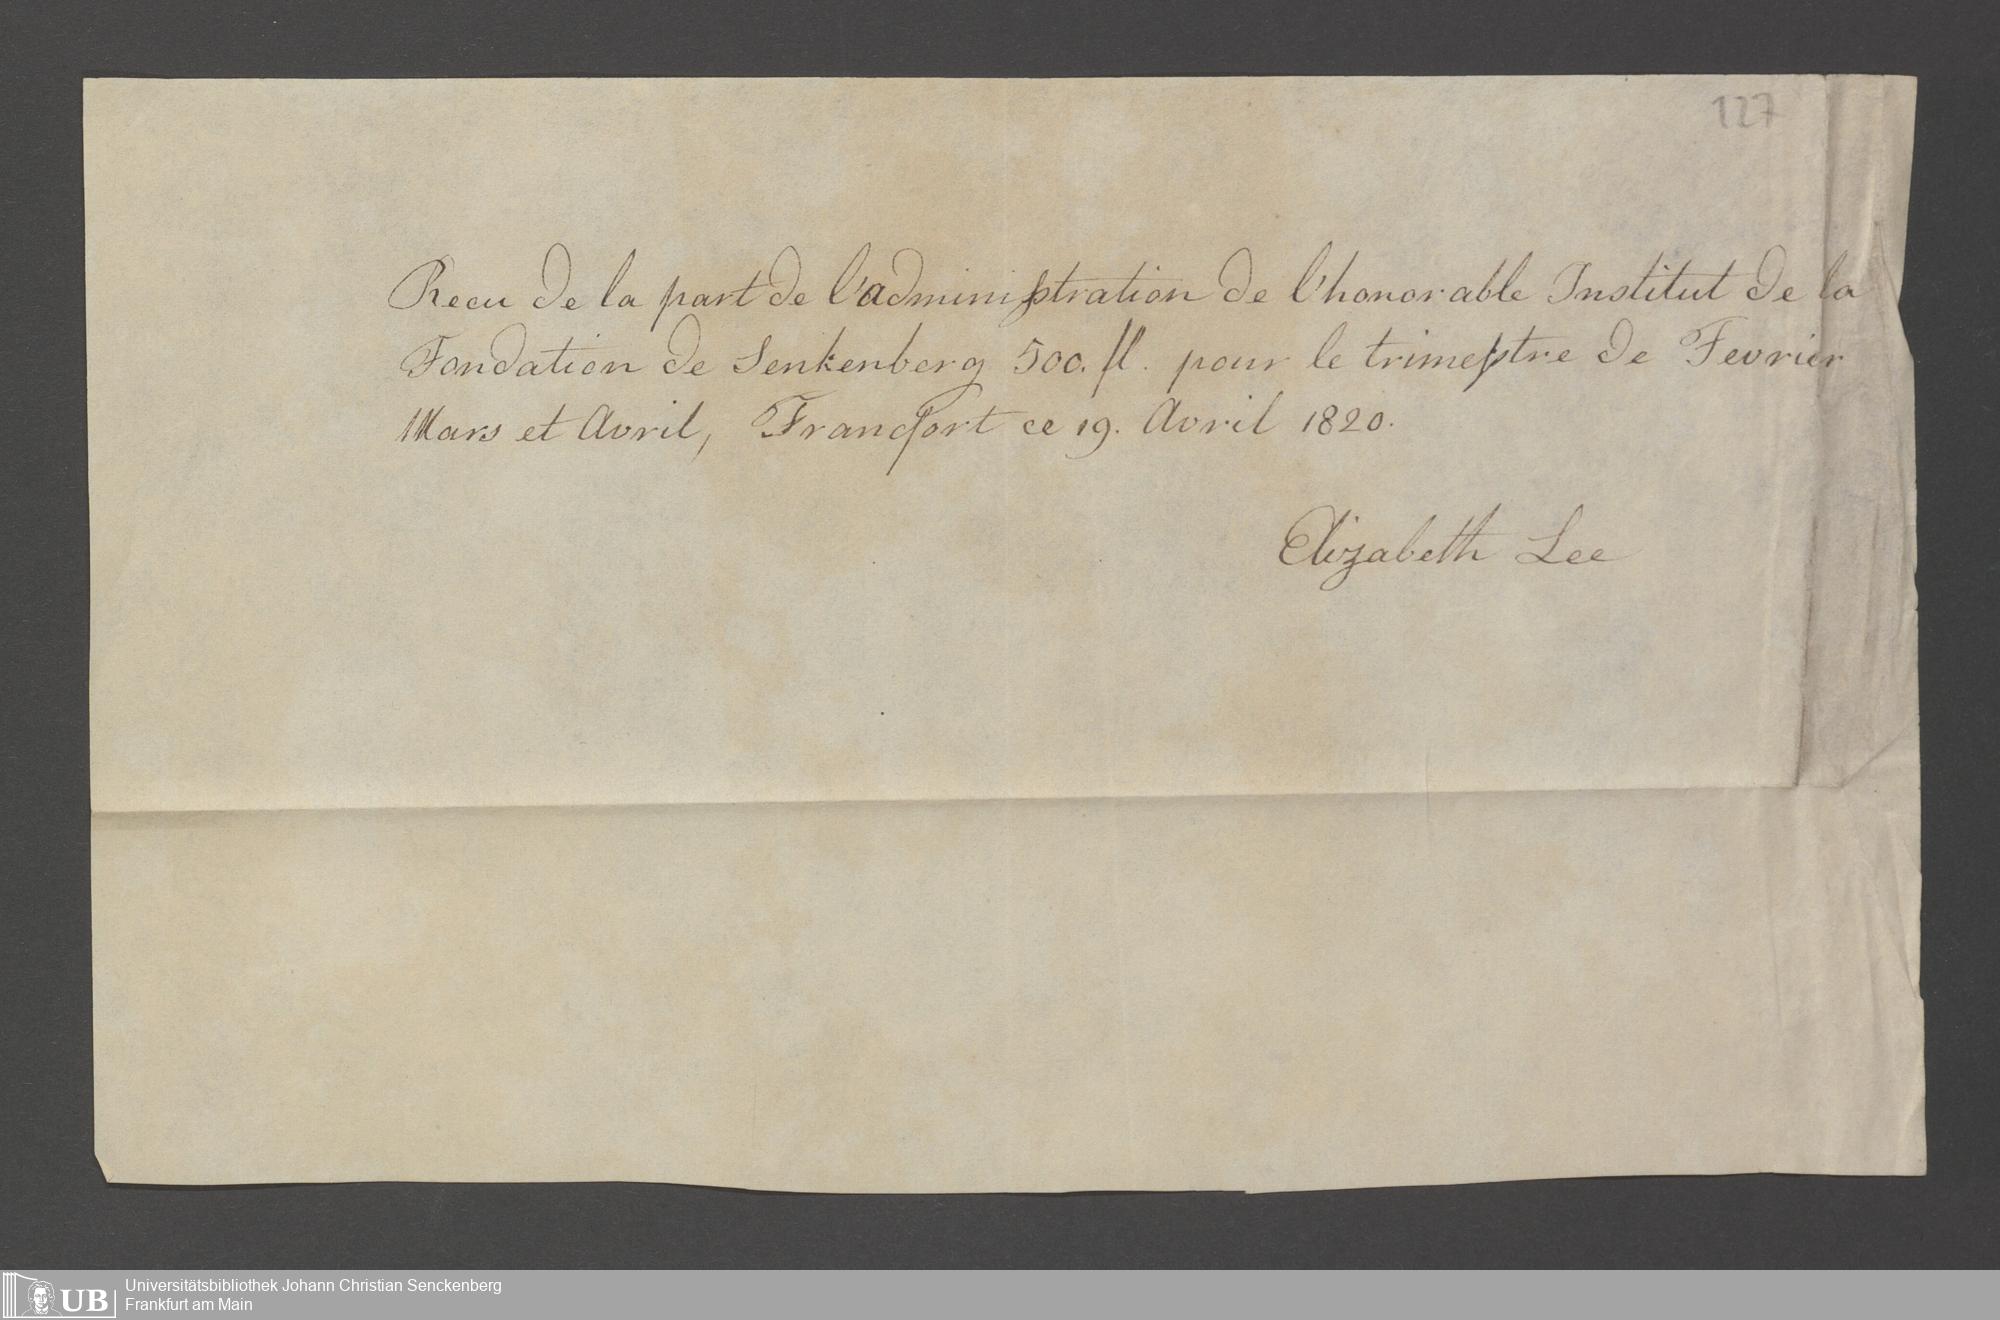 127
Recu de la part de l'administration de l'honorable Institut de la
Fondation de Senkenberg 500. fl. pour le trimestre de Fevrier
Mars et Avril, Francfort ce 19. Avril 1820.
Elizabeth Lee
UB
Universitätsbibliothek Johann Christian Senckenberg
Frankfurt am Main